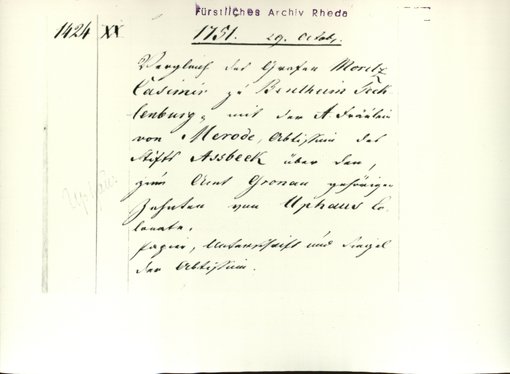 Fürstliches Archiv Rhede
1424 XX 1751. 29. Octob.
Vergleich des Grafen Moritz
Casimir zu Bentheim Teck-
lenburg, mit der A. Fräulein
von Merode, Abtissin des
Stifts Assbeck über den,
zum Amt Gronau gehörigen
Zehnten vom Uphaus Co-
lonate.
Uphaus.
Papier, Unterschrift und Siegel
der Abtissin.